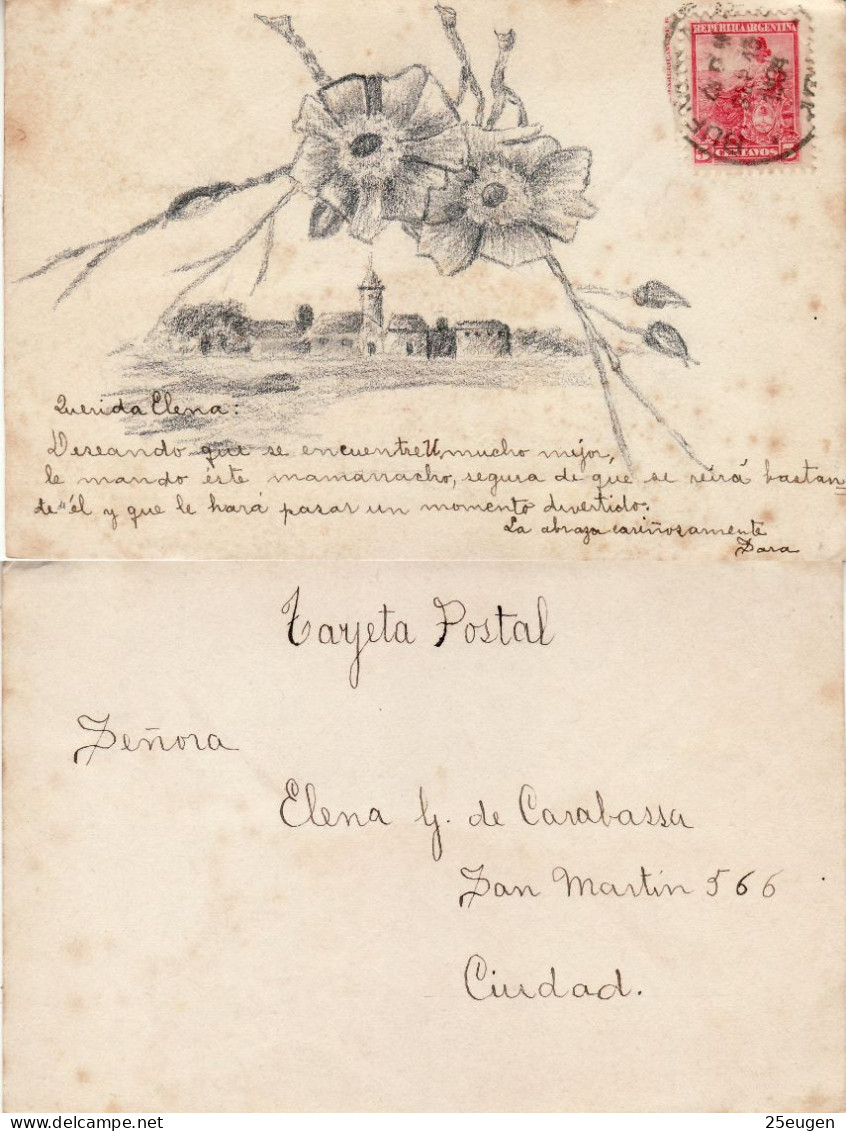 REPUBLICA ARGENTINA
BUENOS
5 CENTAVOS 5
Querida Elena:
Deseando que se encuentre U, mucho mijor,
le mando éste mamarracho, segura de que se reirá bastan=
te "él y que le hará pasar un momento divertido.
La abraza cariñosamente
Sara
Tarjeta Postal
Señora
Elena G. de Carabassa
San Martín 566
Ciudad.
25eugen